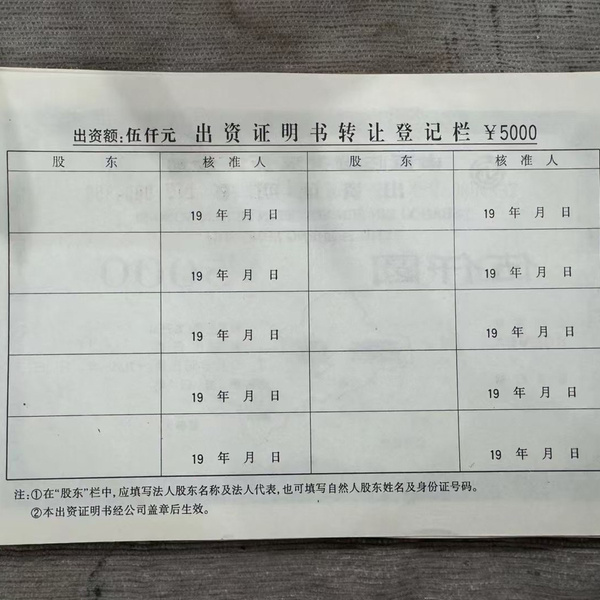 出资额:伍仟元 出资证明书转让登记栏 ¥5000
股东 核准人 股东 核准人
19 年 月 日 19 年 月 日
19 年 月 日 19 年 月 日
19 年 月 日 19 年 月 日
19 年 月 日 19 年 月 日
19 年 月 日 19 年 月 日
注:①在“股东”栏中,应填写法人股东名称及法人代表,也可填写自然人股东姓名及身份证号码。
②本出资证明书经公司盖章后生效。